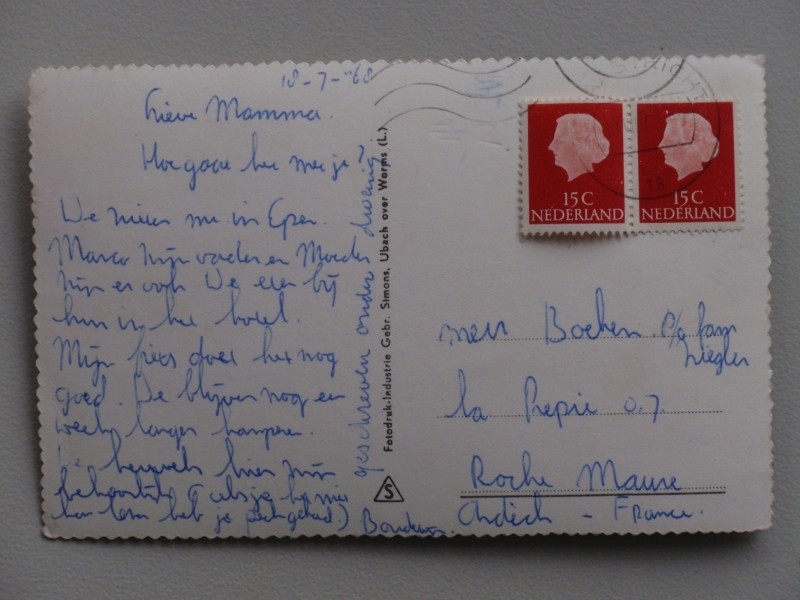 18-7-'68
Lieve Mamma.
Hoe gaat het met je
We zitten nu in Epen.
Marco zijn vader en Moeder
zijn er ook. We eten bij
hun in het hotel.
Mijn fiets doet het nog
goed. We blijven nog een
week langer kamperen.
bergen hier zijn
behoorlijk als je
heb je pech gehad.)
geschreven onder dwang
Fotodruk-Industrie Gebr. Simons, Ubach over Worms (L.)
S
15 C
NEDERLAND
15 C
NEDERLAND
mevr Bocken p/a fam
Ziegler
La
Roche Maure
Ardèch - France.